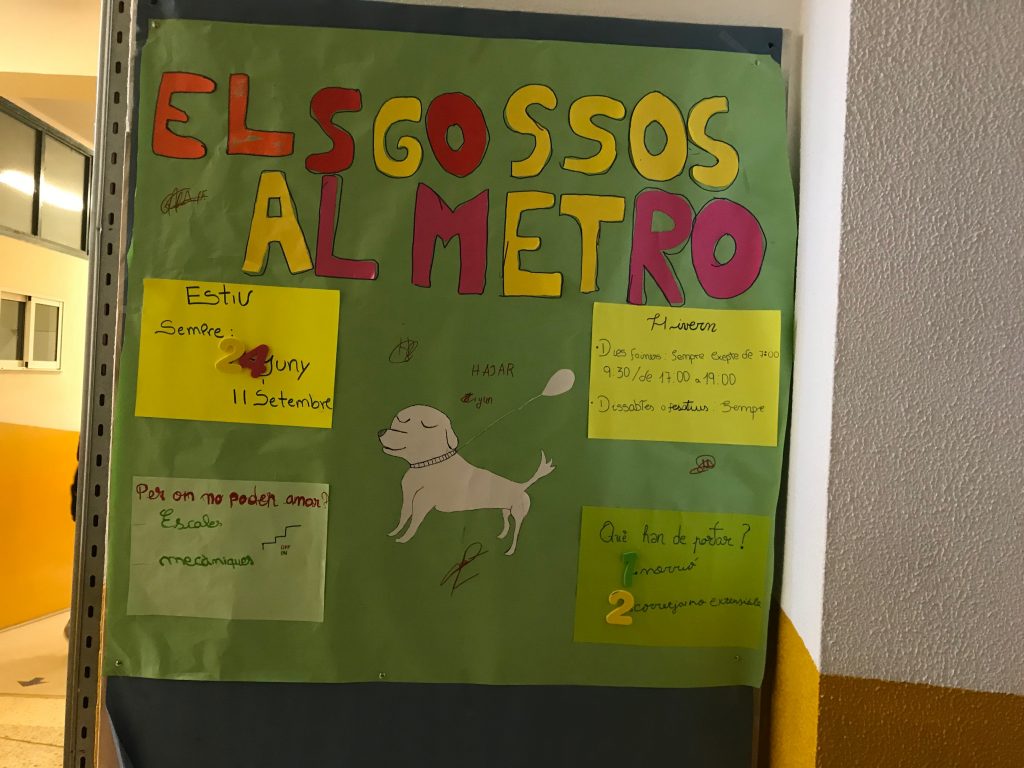 ELS GOSSOS
AL METRO
ESTIU
Sempre:
24 Juny
11 Setembre
Hivern
• Dies feiners: Sempre excepte de 7:00
9.30/de 17.00 a 19:00
• Dissabtes o festius: Sempre
HAJAR
Per on no poden anar?
- Escales
mecàniques
OFF
ON
Què han de portar?
1. morrió
2. corretja no extensible